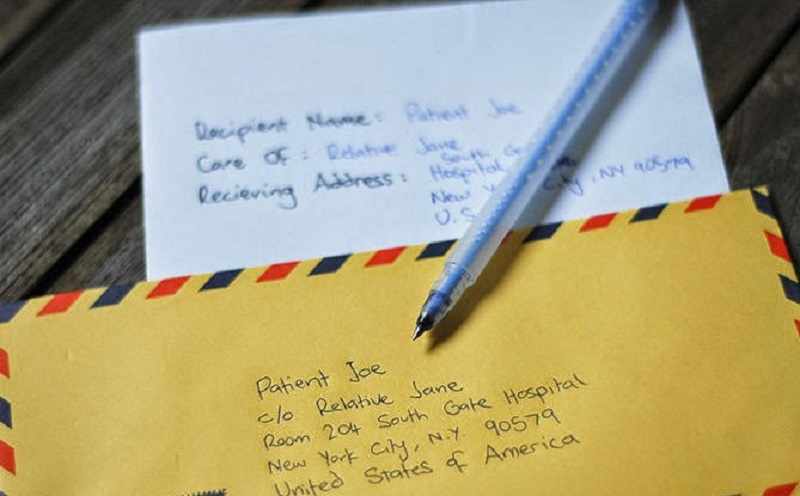 Recipient Name: Patient Joe
Care Of: Relative Jane
South
Recieving Address: Hospital
New City, NY 90579
U.S
Patient Joe
c/o Relative Jane
Room 204 South Gate Hospital
New York City, N.Y. 90579
United States of America